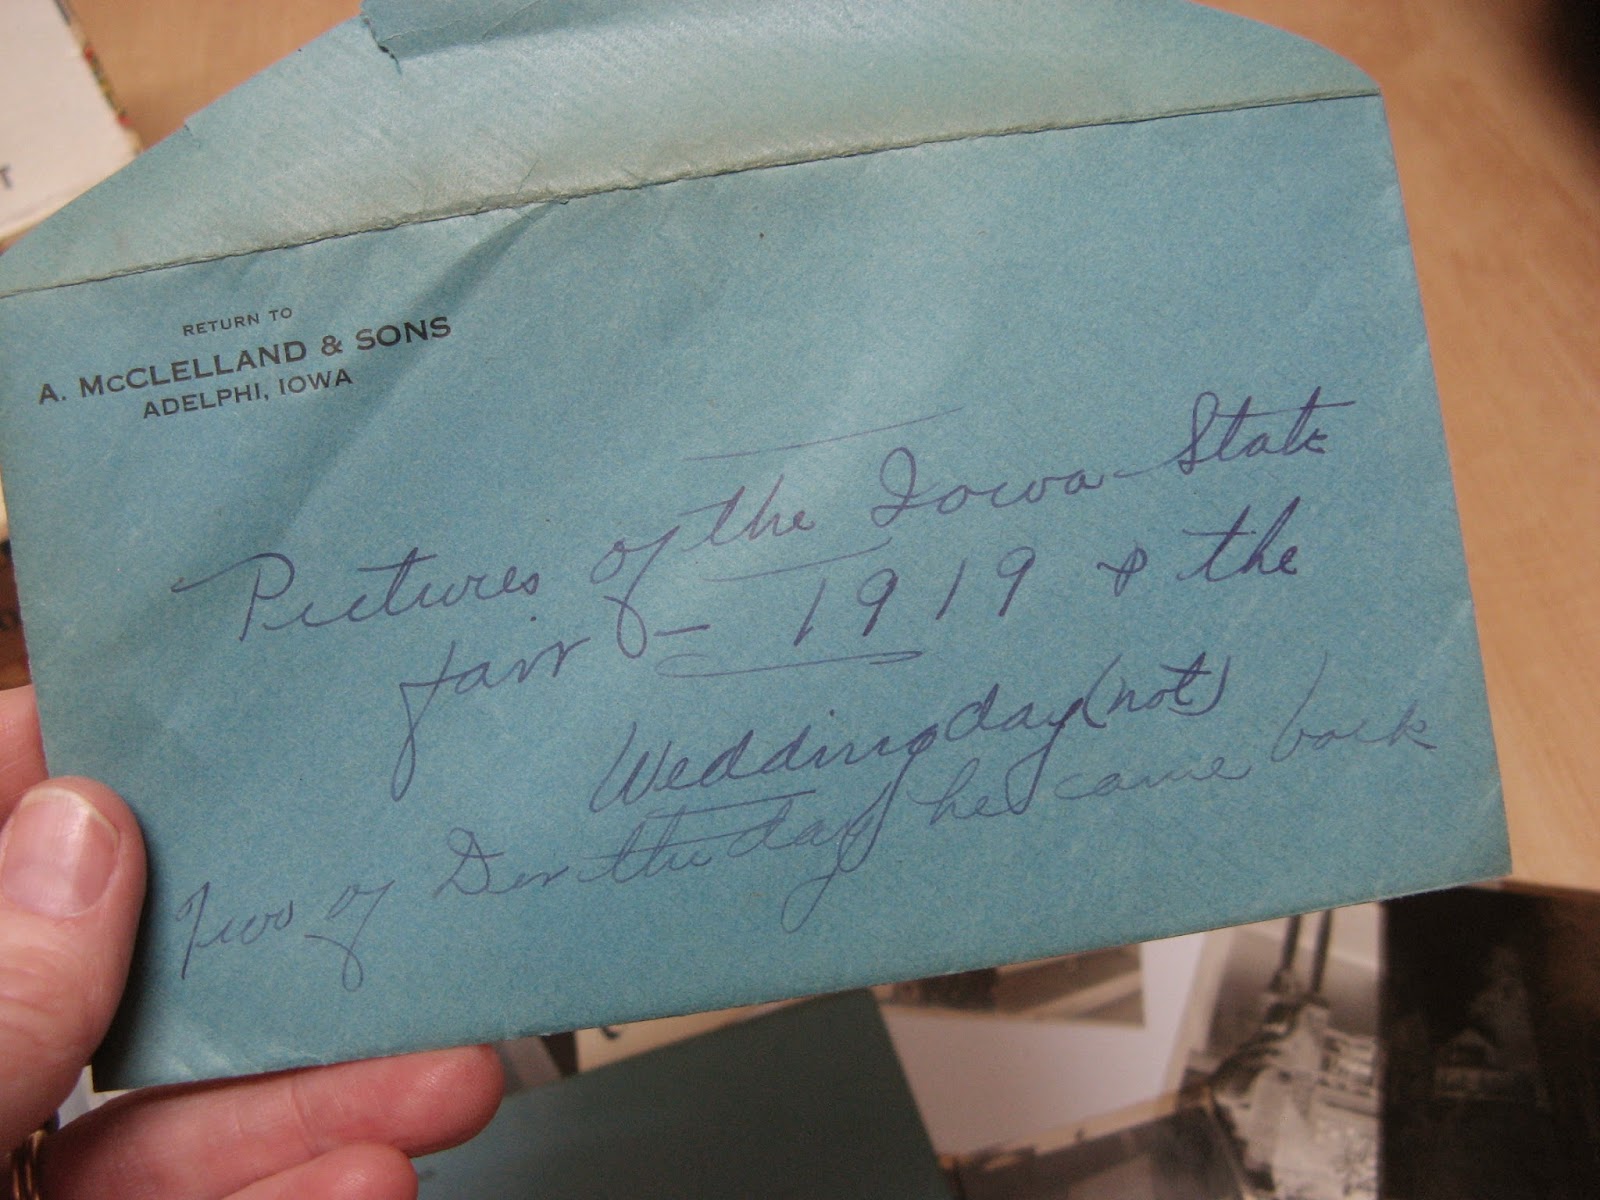 RETURN TO
A. McCLELLAND & SONS
ADELPHI, IOWA
Pictures of the Iowa State
fair - 1919 & the
Wedding day (not)
Two of Der the day he came back
T